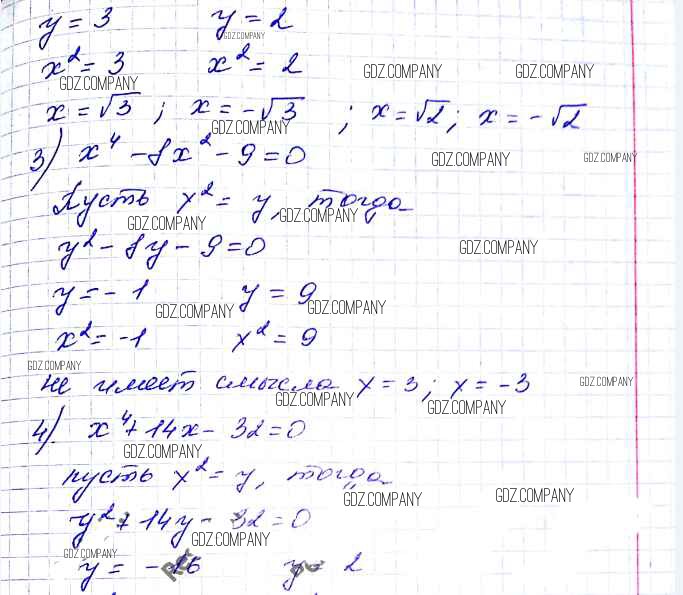 y = 3 y = 2
GDZ.COMPANY
x² = 3 x² = 2
GDZ.COMPANY GDZ.COMPANY GDZ.COMPANY
x = √3 ; x = -√3 ; x = √2 ; x = -√2
GDZ.COMPANY
3) x⁴ - 8x² - 9 = 0
GDZ.COMPANY GDZ.COMPANY
Пусть x² = y, тогда
GDZ.COMPANY GDZ.COMPANY
y² - 8y - 9 = 0
GDZ.COMPANY
y = - 1 y = 9
GDZ.COMPANY GDZ.COMPANY
x² = -1 x² = 9
GDZ.COMPANY
не имеет смысла x = 3 ; x = -3
GDZ.COMPANY GDZ.COMPANY GDZ.COMPANY
4) x⁴ + 14x - 32 = 0
GDZ.COMPANY
пусть x² = y, тогда
GDZ.COMPANY GDZ.COMPANY
y² + 14y - 32 = 0
GDZ.COMPANY
GDZ.COMPANY
y = -16 y = 2